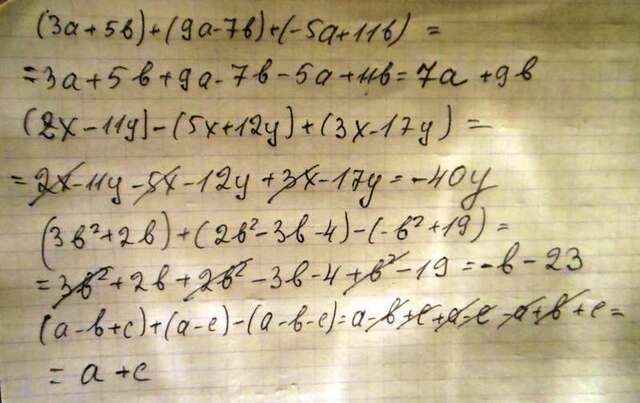 (3a + 5b) + (9a - 7b) + (-5a + 11b) =
= 3a + 5b + 9a - 7b - 5a + 11b = 7a + 9b
(2x - 11y) - (5x + 12y) + (3x - 17y) =
= 2x - 11y - 5x - 12y + 3x - 17y = -40y
(3b² + 2b) + (2b² - 3b - 4) - (-b² + 19) =
= 3b² + 2b + 2b² - 3b - 4 + b² - 19 = -b - 23
(a - b + c) + (a - c) - (a - b - c) = a - b + c + a - c - a + b + c =
= a + c